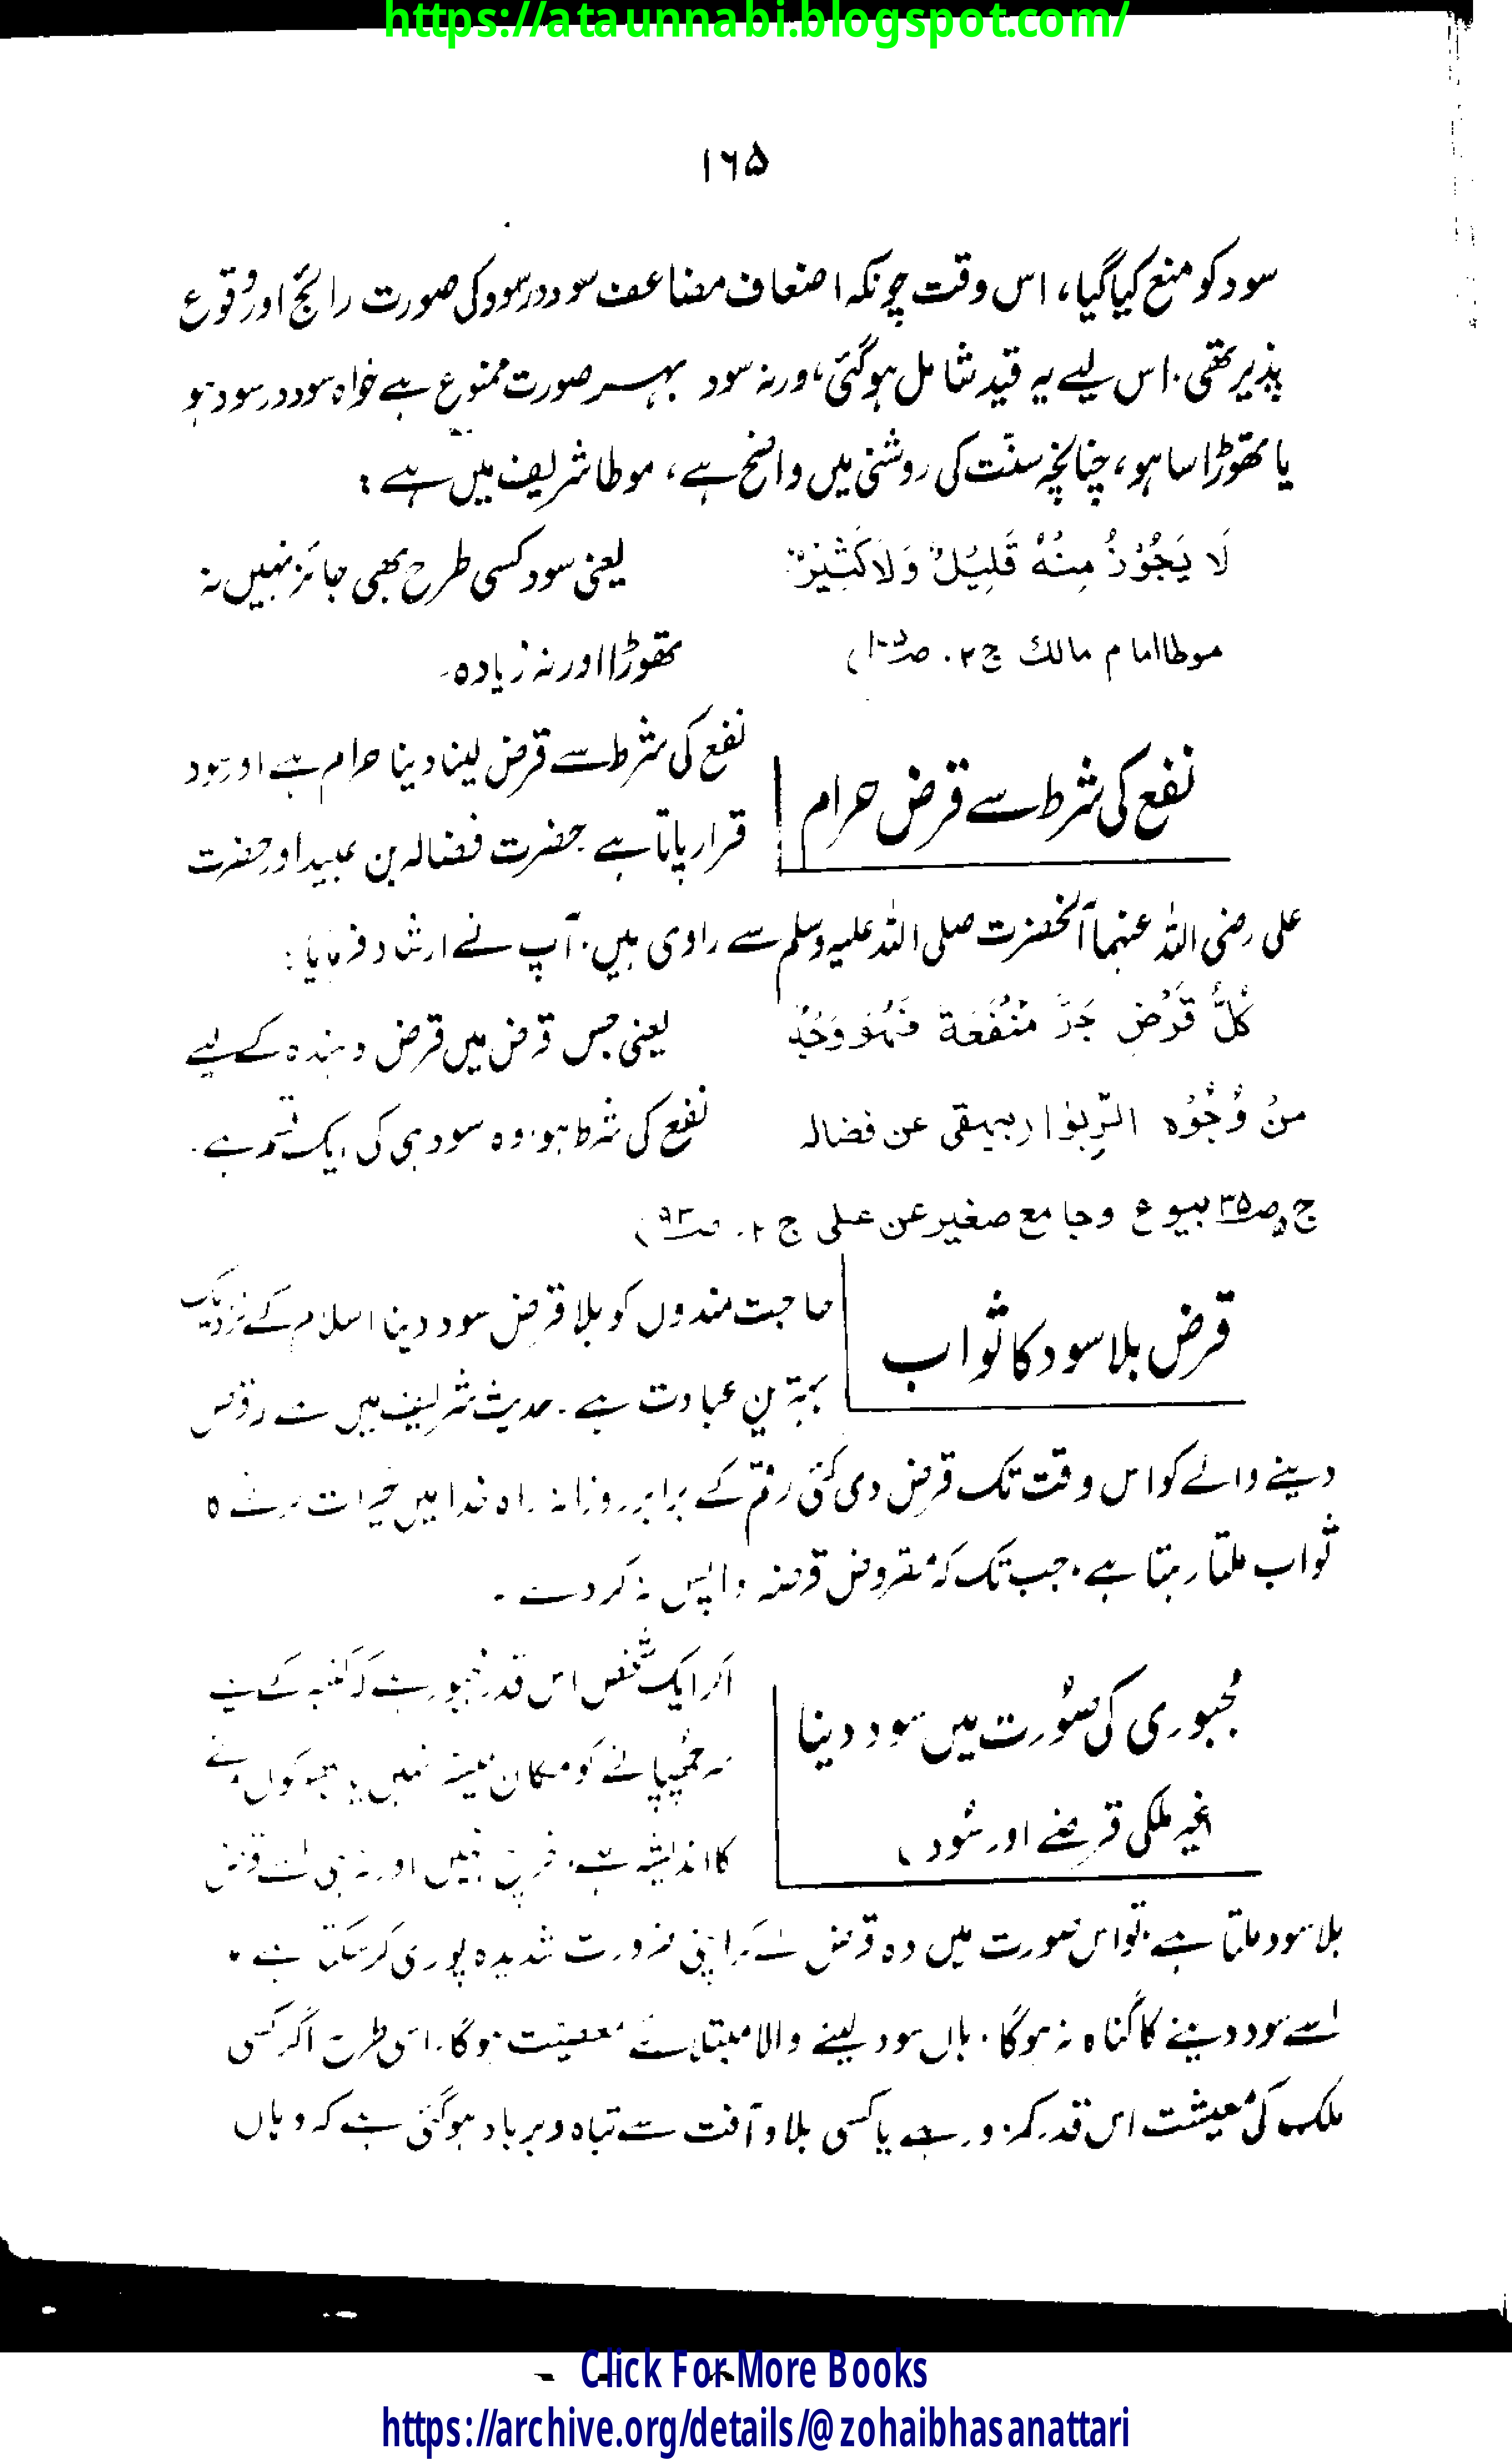 https://ataunnabi.blogspot.com/
۱۶۵
سود کو منع کیا گیا، اس وقت چونکہ اضعاف مضاعف سود در سود کی صورت رائج اور وقوع
پذیر تھی۔ اس لیے یہ قید شامل ہو گئی، ورنہ سود بہر صورت ممنوع ہے خواہ سود در سود ہو
یا تھوڑا سا ہو، چنانچہ سنّت کی روشنی میں واضح ہے، موطا شریف میں ہے :
لَا يَجُوْزُ مِنْهُ قَلِيْلٌ وَلَا كَثِيْرٌ
یعنی سود کسی طرح بھی جائز نہیں نہ
موطا امام مالک ج ۲۔
تھوڑا اور نہ زیادہ۔
نفع کی شرط سے قرض حرام
نفع کی شرط سے قرض لینا دینا حرام ہے اور سود
قرار پاتا ہے۔ حضرت فضالہ بن عبید اور حضرت
علی رضی اللہ عنہما آنحضرت صلی اللہ علیہ وسلم سے راوی ہیں۔ آپ نے ارشاد فرمایا :
كُلُّ قَرْضٍ جَرَّ مَنْفَعَة فَهُوَ وَجْهٌ
یعنی جس قرض میں قرض دہندہ کے لیے
مِنْ وُجُوْهِ الرِّبٰوا (بیہقی عن فضالہ
نفع کی شرط ہو، وہ سود ہی کی ایک قسم ہے۔
ج ۵ ص ۳۵ بیوع وجامع صغیر عن علی ج ۲۔ ص ۹۳)
قرض بلا سود کا ثواب
حاجت مندوں کو بلا قرض سود دینا اسلام کے نزدیک
بہترین عبادت ہے۔ حدیث شریف میں ہے قرض
دینے والے کو اس وقت تک قرض دی گئی رقم کے برابر روزانہ راہ خدا میں خیرات کرنے کا
ثواب ملتا رہتا ہے۔ جب تک کہ مقروض قرضہ واپس نہ کر دے۔
مجبوری کی صُورت میں سود دینا
اگر ایک شخص اس قدر مجبور ہے کہ کنبہ کے لیے
سر چھپانے کو مکان میسر نہیں یا بھوکوں مرنے
(غیر ملکی قرضے اور سُود)
کا اندیشہ ہے، خرچ نہیں اور نہ ہی اسے قرض
بلا سود ملتا ہے، تو اس صورت میں وہ قرض لے کر اپنی ضرورت شدیدہ پوری کر سکتا ہے۔
اسے سود دینے کا گناہ نہ ہو گا۔ ہاں سود لینے والا مبتلائے معصیت ہو گا۔ اسی طرح اگر کسی
ملک کی معیشت اس قدر کمزور ہے یا کسی بلا و آفت سے تباہ و برباد ہو گئی ہے کہ وہاں
Click For More Books
https://archive.org/details/@zohaibhasanattari